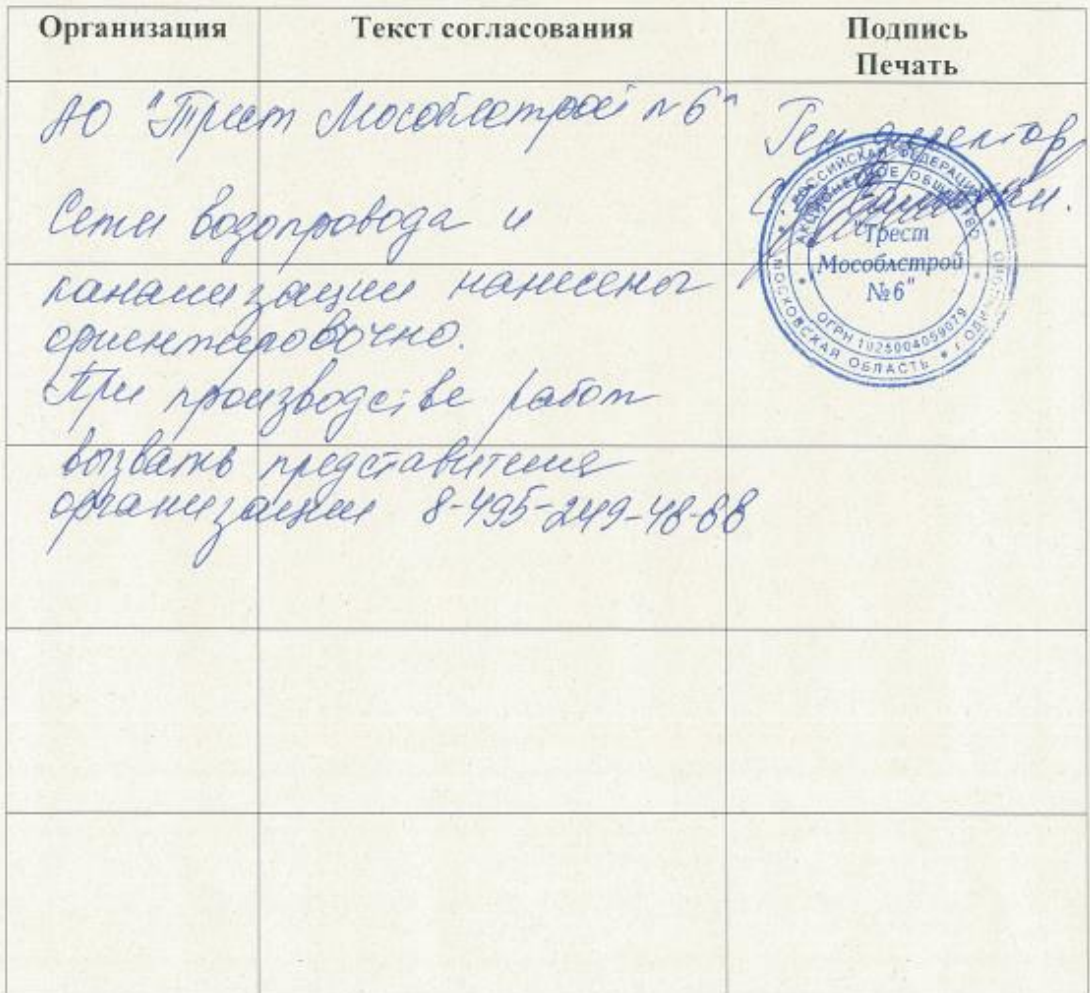 Организация Текст согласования Подпись
Печать
АО "Трест Мособлстрой №6" Ген директор
Сети водопровода и
канализации нанесены
ориентировочно.
При производстве работ
вызвать представителя
организации 8-495-249-48-88
РОССИЙСКАЯ ФЕДЕРАЦИЯ * МОСКОВСКАЯ ОБЛАСТЬ *
АКЦИОНЕРНОЕ ОБЩЕСТВО
ОГРН 1025004059079
"Трест
Мособлстрой
№6"